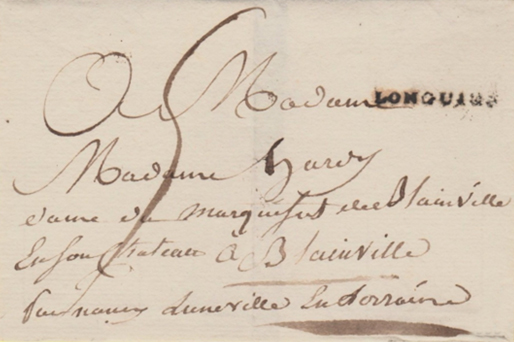 A Madame LONGUION
Madame hardy
dame du marquisat de Blainville
En son chateau A Blainville
par nancy Luneville En Lorraine
5